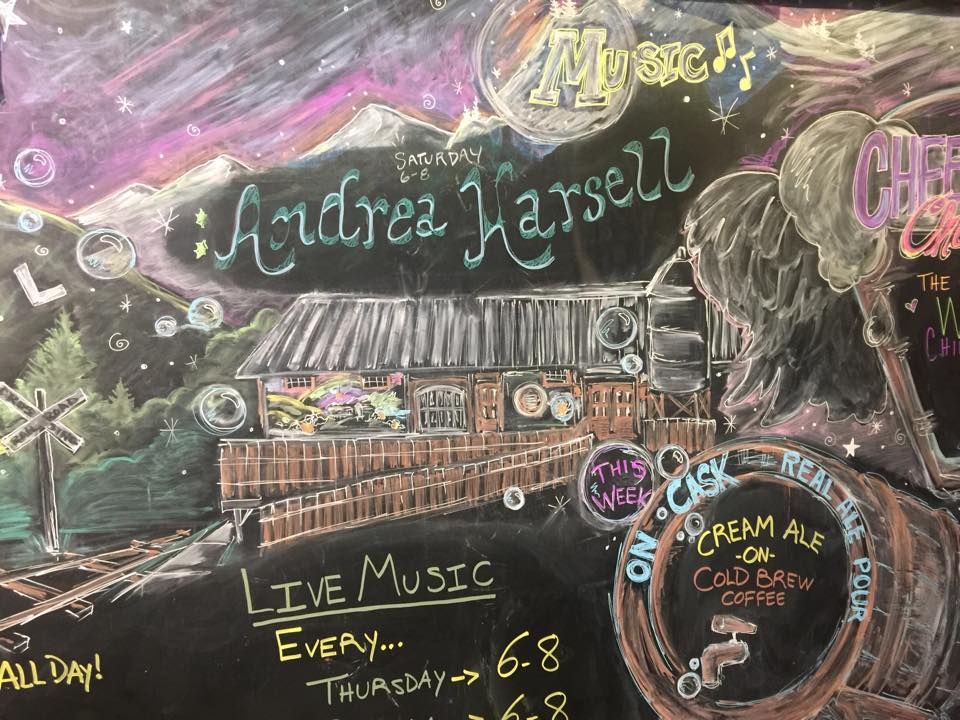 Music
SATURDAY
6-8
Andrea Harsell
L
CHEE
THE
THIS
WEEK
ON CASK REAL ALE POUR
CREAM ALE
-ON-
COLD BREW
COFFEE
LIVE MUSIC
EVERY...
THURSDAY → 6-8
→ 6-8
ALL DAY!